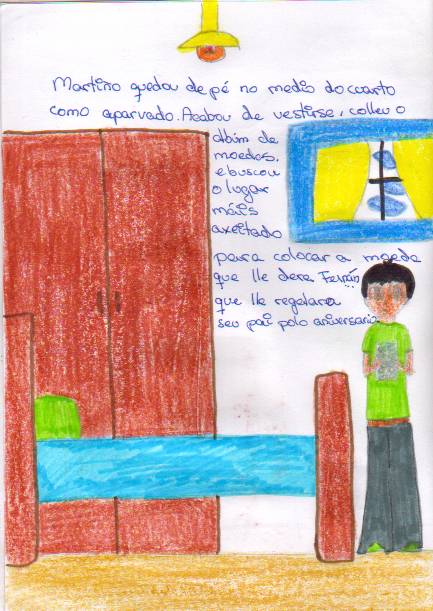 Martiño quedou de pé no medio do cuarto
como aparvado. Acabou de vestirse, colleu o
álbum de
moedas,
e buscou
o lugar
máis
axeitado
para colocar a moeda
que lle dera Fernán
que lle regalara
seu pai polo aniversario